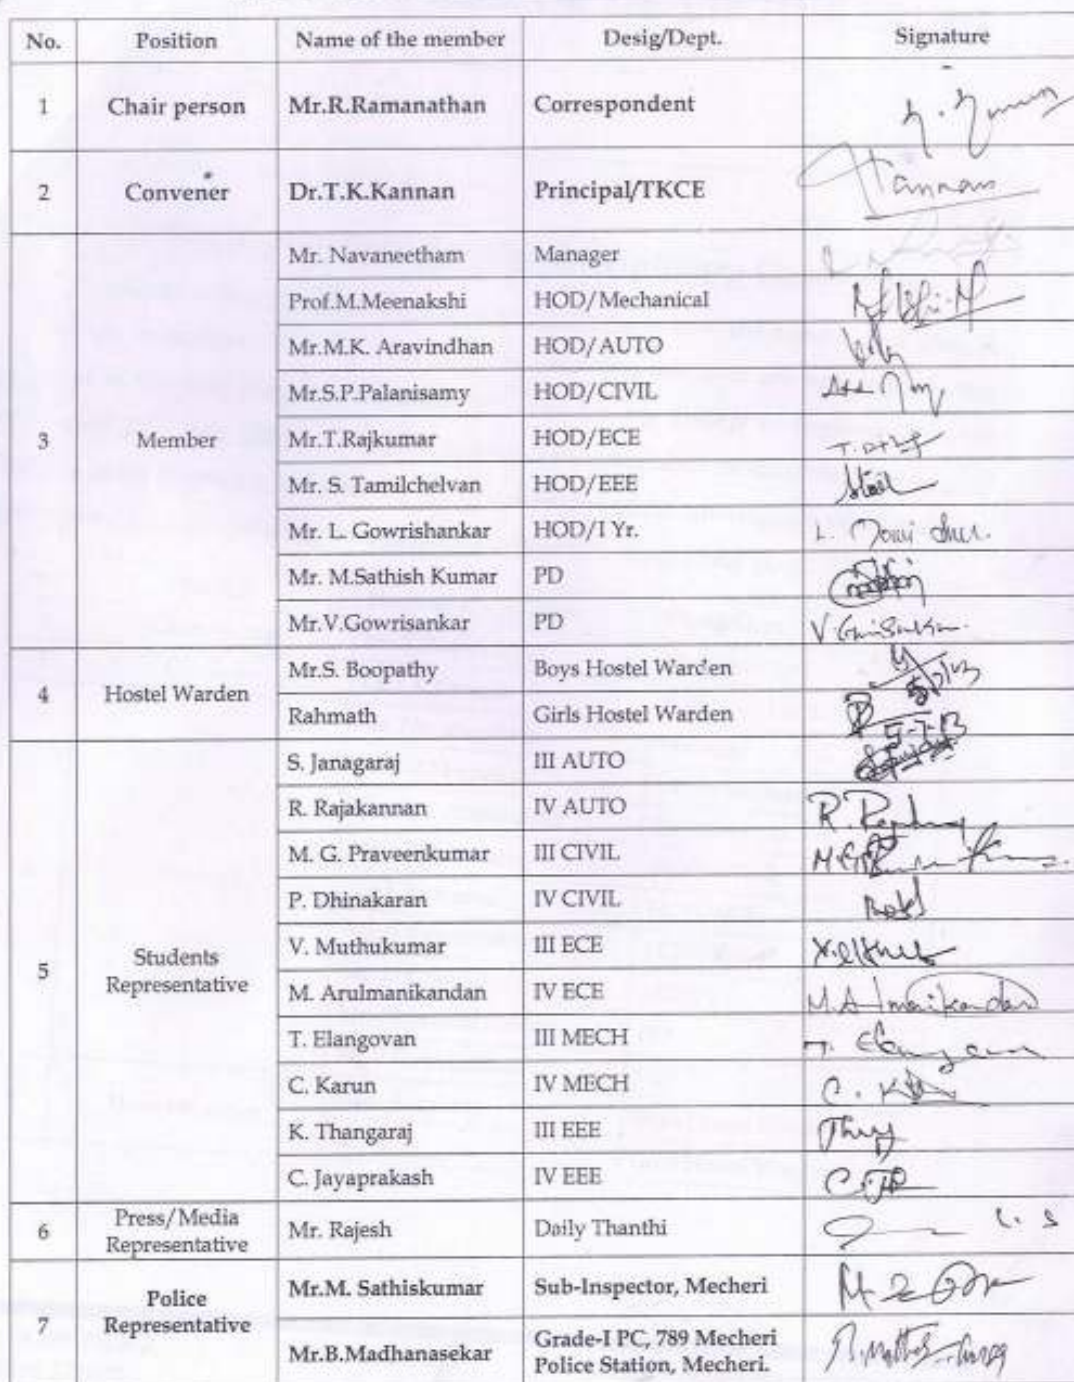 No. Position Name of the member Desig/Dept. Signature
1 Chair person Mr.R.Ramanathan Correspondent
2 Convener Dr.T.K.Kannan Principal/TKCE Kannan
3 Member
Mr. Navaneetham Manager
Prof.M.Meenakshi HOD/Mechanical
Mr.M.K. Aravindhan HOD/AUTO
Mr.S.P.Palanisamy HOD/CIVIL
Mr.T.Rajkumar HOD/ECE
Mr. S. Tamilchelvan HOD/EEE
Mr. L. Gowrishankar HOD/I Yr.
Mr. M.Sathish Kumar PD
Mr.V.Gowrisankar PD
4 Hostel Warden
Mr.S. Boopathy Boys Hostel Warden
Rahmath Girls Hostel Warden
5 Students
Representative
S. Janagaraj III AUTO
R. Rajakannan IV AUTO
M. G. Praveenkumar III CIVIL
P. Dhinakaran IV CIVIL
V. Muthukumar III ECE
M. Arulmanikandan IV ECE
T. Elangovan III MECH
C. Karun IV MECH
K. Thangaraj III EEE
C. Jayaprakash IV EEE
6 Press/Media
Representative Mr. Rajesh Daily Thanthi
7 Police
Representative
Mr.M. Sathiskumar Sub-Inspector, Mecheri
Mr.B.Madhanasekar Grade-I PC, 789 Mecheri
Police Station, Mecheri.